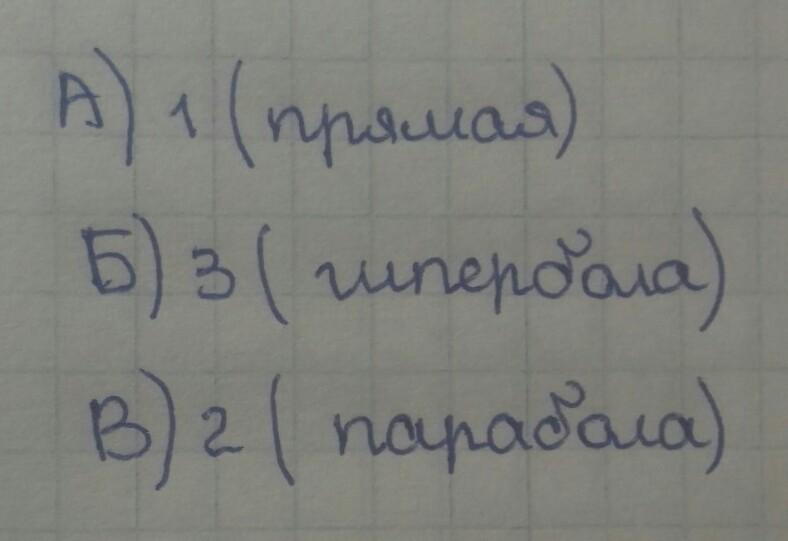 А) 1 (прямая)
Б) 3 ( гипербола)
В) 2 ( парабола)